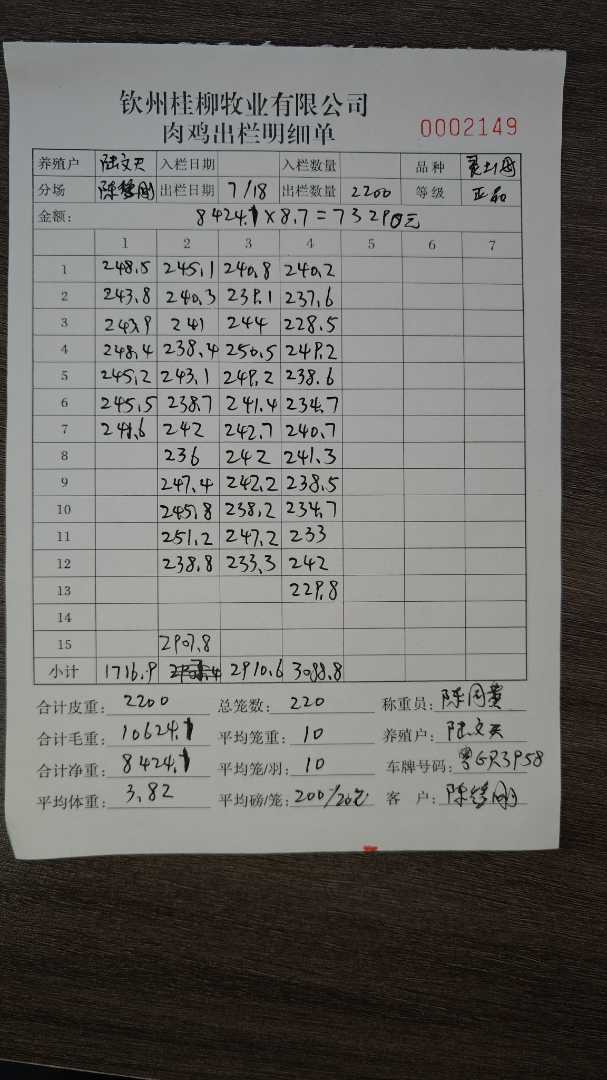 钦州桂柳牧业有限公司
肉鸡出栏明细单
0002149
养殖户 陆文天 入栏日期 入栏数量 品种
分场 出栏日期 7/18 出栏数量 2200 等级 正品
金额: 8424.1×8.7=73290元
1 2 3 4 5 6 7
1 248.5 245.1 240.8 240.2
2 243.8 240.3 239.1 237.6
3 243.9 241 244 228.5
4 248.4 238.4 250.5 249.2
5 245.2 243.1 249.2 238.6
6 245.5 238.7 241.4 234.7
7 241.6 242 242.7 240.7
8 236 242 241.3
9 247.4 242.2 238.5
10 245.8 238.2 234.7
11 251.2 247.2 233
12 238.8 233.3 242
13 229.8
14
15 2907.8
小计 1716.9 2910.6 3088.8
合计皮重: 2200 总笼数: 220 称重员:
合计毛重: 10624.1 平均笼重: 10 养殖户: 陆文天
合计净重: 8424.1 平均笼/羽: 10 车牌号码: 粤GR3958
平均体重: 3.82 平均磅/笼: 200/20笼 客户: